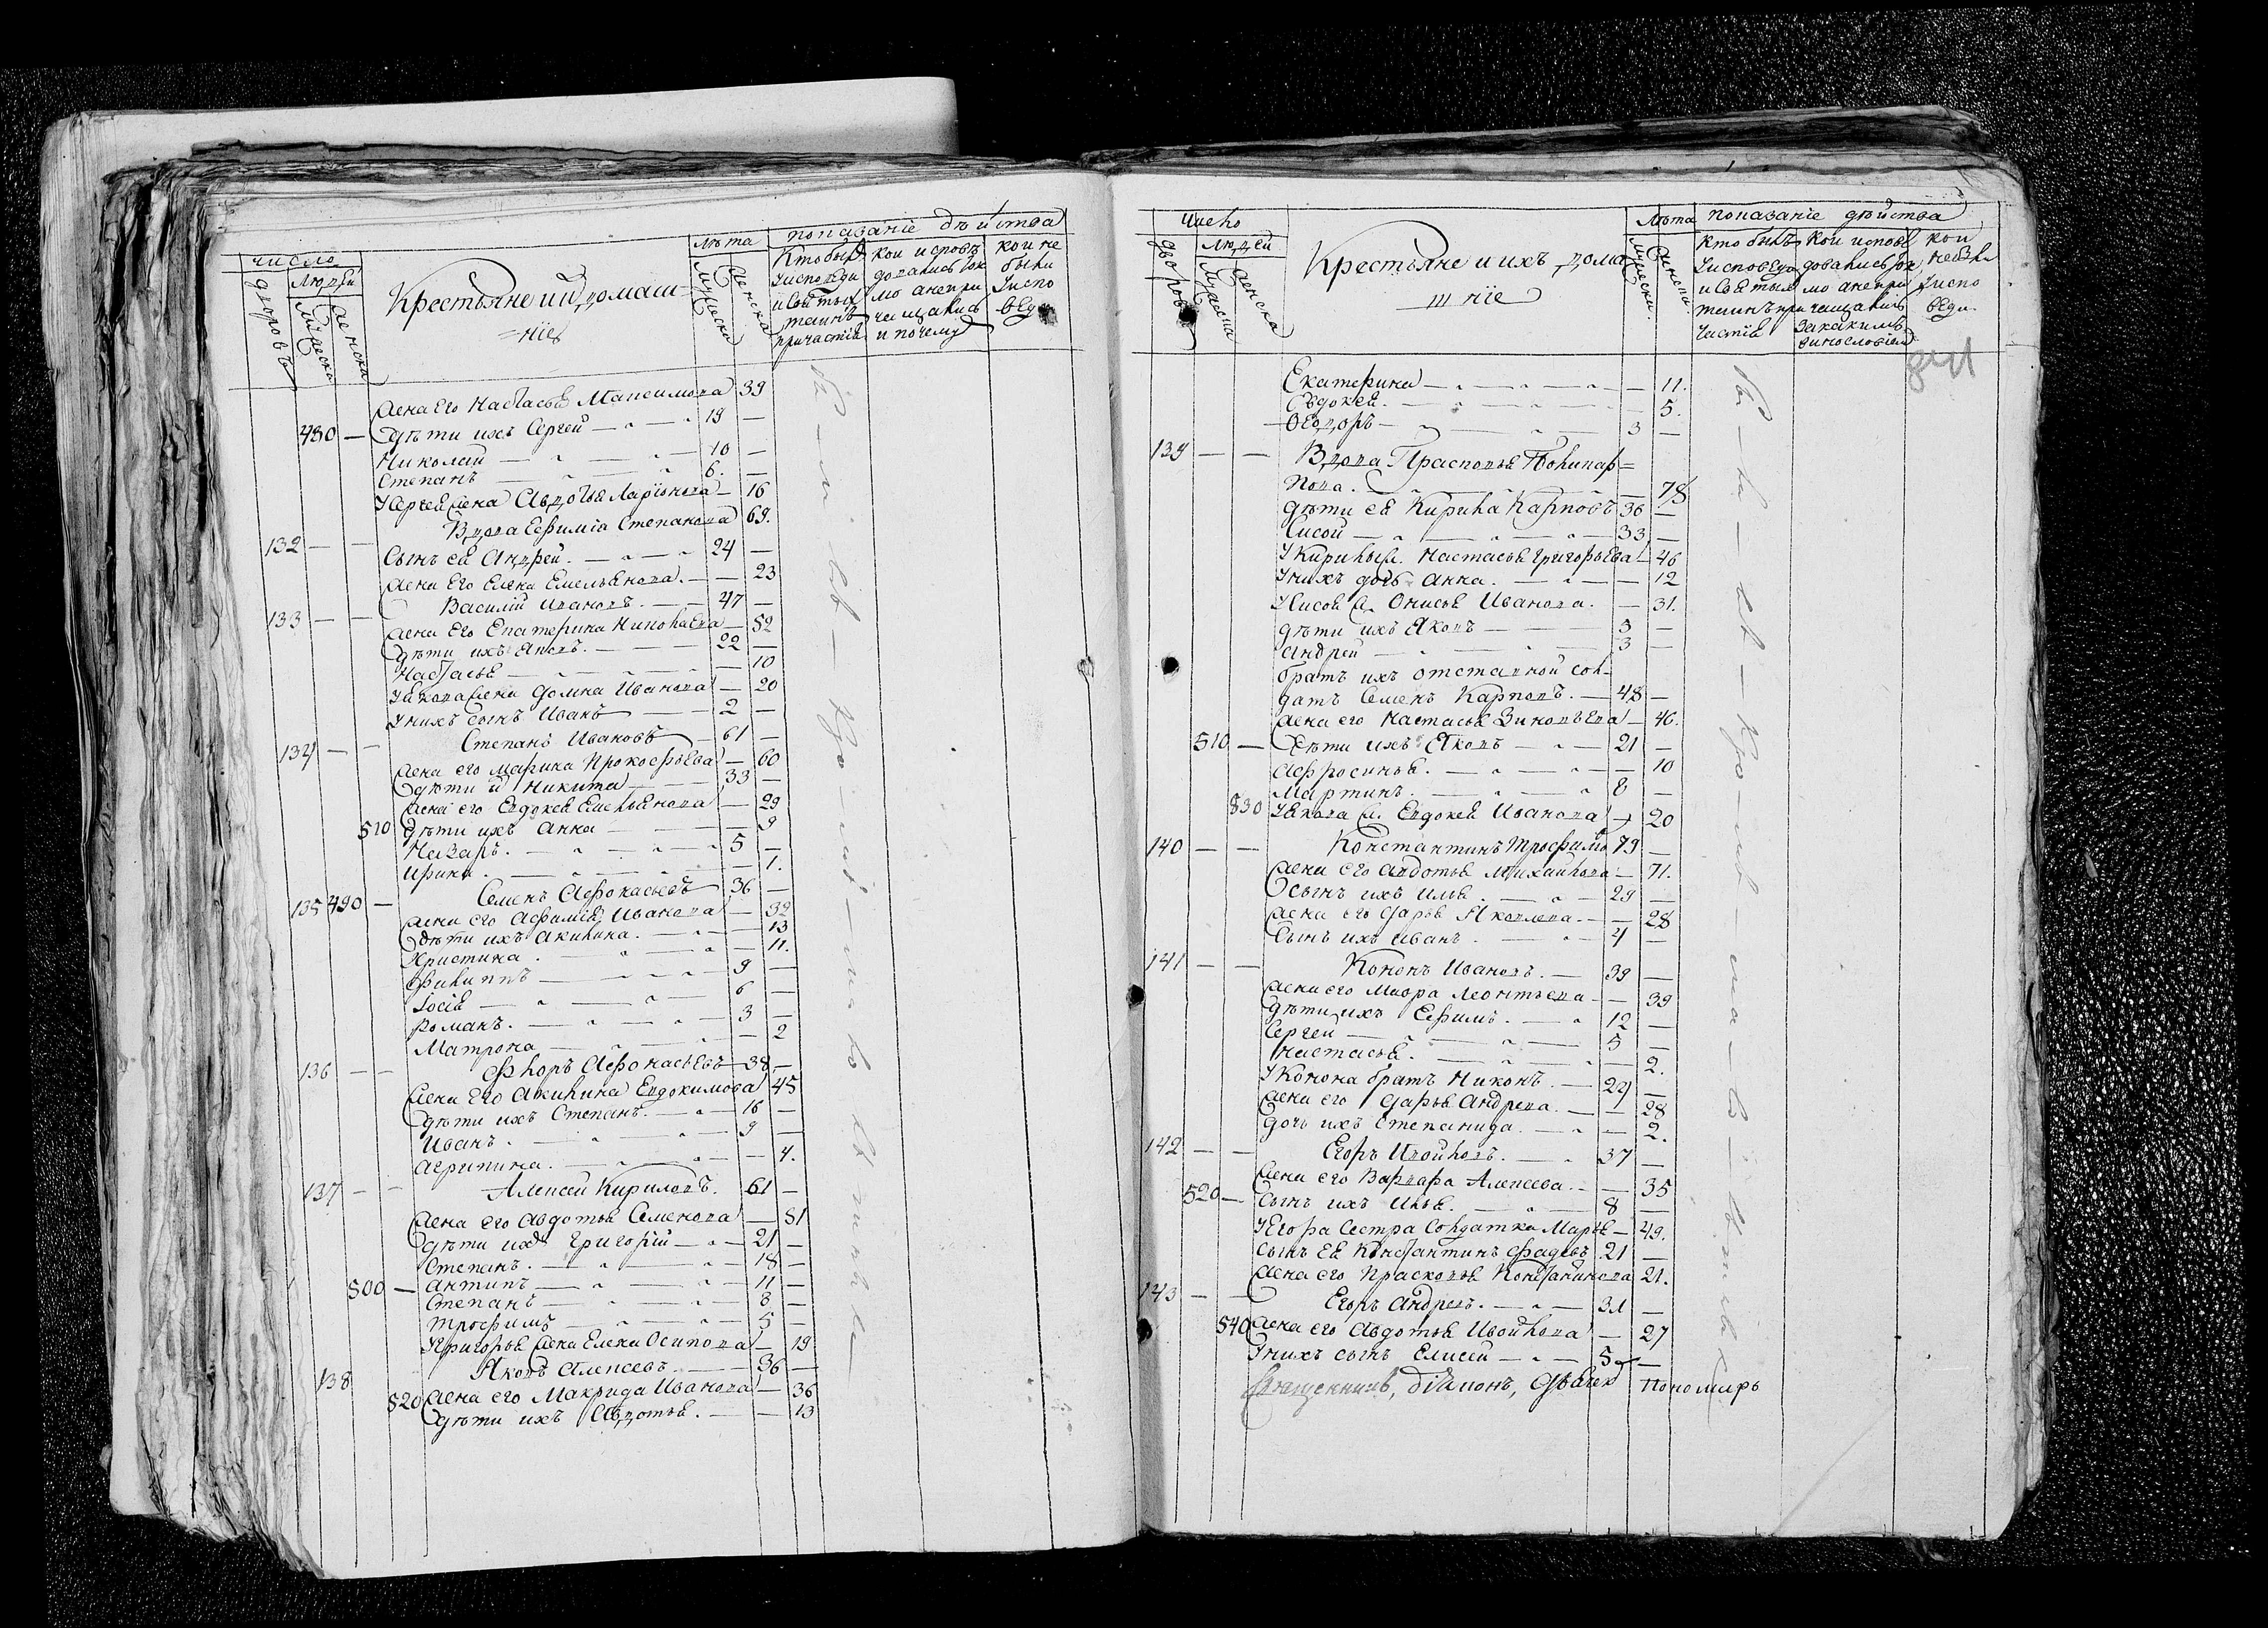 число
Людей
дворовъ
мужеска
женска
Крестьяне и ихъ домаш=
=ніе
лѣта
мужеска
женска
показаніе дѣйства
Кто былъ у исповеди и святыхъ таинъ причастія
кои исповѣдовались токмо а не причащались и почему
кои не были у исповеди
жена Его Настасья Максимова 39
480 — дѣти ихъ Сергей — 19 —
Николай — 10 —
Степанъ — 6. —
У Сергея жена Авдотья Ларіонова — 16
132 — — Вдова Ефимія Степанова 69.
Сынъ ея Андрей. — 24 —
жена Его Елена Емельянова. — 23
133 — — Василій Ивановъ. — 47 —
жена Его Екатерина Николаева — 52
дѣти ихъ Яковъ. — 22 —
Настасья — — 10
У Якова жена Домна Иванова — 20
У нихъ сынъ Иванъ — 2 —
134 — — Степанъ Ивановъ — 61 —
жена его Марина Прокофьева — 60
дѣти и Никита — 33 —
жена его Евдокея Емельянова — 29
510 дѣти ихъ Анна — — 9
Назаръ. — 5 —
Ирина. — — 1.
135 490 — Семенъ Афонасьевъ 36 —
жена его Афимія Иванова — 32
дѣти ихъ Акилина. — — 13
Христина. — — 11.
Филиппъ — 9 —
Іосія — 6 —
Романъ. — 3 —
Матрона — — 2
136 — — Флоръ Афонасьевъ 38, —
жена Его Акилина Евдокимова 45
дѣти ихъ Степанъ. — 16 —
Иванъ. — 9 —
Агрипина. — — 4.
137 — — Алексей Кириловъ. 61 —
жена его Авдотья Семенова — 51
дѣти ихъ Григорій — 21 —
Степанъ. — 18 —
500 — Антипъ — 11 —
Степанъ — 8 —
Трофимъ — 5 —
У Григорья жена Елена Осипова — 19
138 Яковъ Алексеевъ — 36 —
520 жена его Макрида Иванова — 36
дѣти ихъ Авдотья. — — 13
число
Людей
дворовъ
мужеска
женска
Крестьяне и ихъ дома
шніе
Лѣта
мужеска
женска
показаніе дѣйства
кто былъ у исповеди и святыхъ таинъ причастія
кои исповѣдовались токмо а не причащались за какимъ винословіем
кои небыли у исповеди.
841
Екатерина — — 11.
Евдокея. — — 5.
Ѳедоръ — 3 —
139 — — Вдова Прасковья Поликар=
пова. — — 78
дѣти ея Кирила Карповъ 36 —
Сисой — 33 —
У Кирилы ж. Настасья Григорьева — 46
У нихъ дочь Анна. — — 12
У Сисоя ж. Онисья Иванова. — 31.
дѣти ихъ Яковъ — 3 —
Андрей — 3 —
братъ ихъ отставной сол-
датъ Семенъ Карповъ. — 48 —
жена его Настасья Зиновьева — 46.
510 — дѣти ихъ Яковъ — 21 —
Афросинья. — — 10
Мартинъ. — 8 —
530 У Якова ж. Евдокея Иванова — 20
140 — — Константинъ Трофимо 79 —
жена его Авдотья Михайлова — 71.
сынъ ихъ Илья. — 29 —
жена его Дарья Яковлева. — — 28
Сынъ ихъ Иванъ. — 4 —
141 — — Кононъ Ивановъ. — 39 —
жена его Мавра Леонтьева — — 39
дѣти ихъ Ефимъ. — 12 —
Сергей — 5 —
Настасья. — — 2.
У Конона братъ Никонъ. — 24 —
жена его Дарья Андреева. — — 28
дочь ихъ Степанида. — — 2.
142 — — Егоръ Ивойловъ. — 37 —
жена его Варвара Алексеева. — — 35
520 — Сынъ ихъ Илья. — 8 —
У Егора Сестра Солдатка Марья — 49.
сынъ ея Константинъ Фадеевъ 21 —
жена его Прасковья Константинова 21.
143 — — Егоръ Андреевъ. — 31 —
540 жена его Авдотья Ивойлова — 27
У нихъ сынъ Елисей — 5 —
Священникъ, діаконъ, Дьячек пономарь